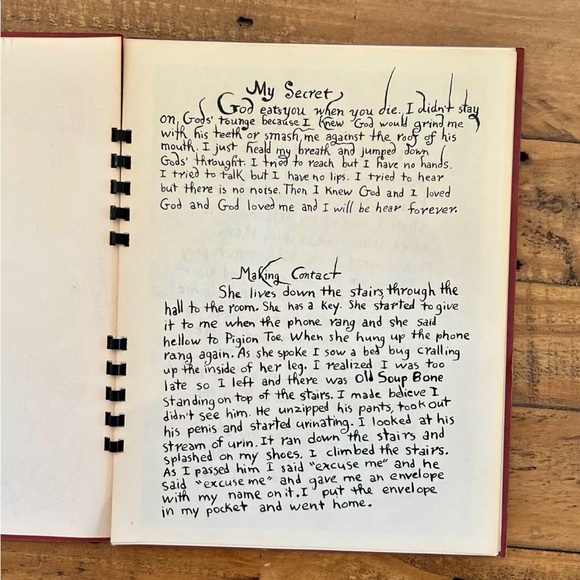 My Secret
God eats you when you die. I didn't stay
on Gods' tounge because I knew God would grind me
with his teeth or smash me against the roof of his
mouth. I just heald my breath and jumped down
Gods' throught. I tried to reach but I have no hands.
I tried to talk but I have no lips. I tried to hear
but there is no noise. Then I knew God and I loved
God and God loved me and I will be hear forever.
Making Contact
She lives down the stairs through the
hall to the room. She has a key. She started to give
it to me when the phone rang and she said
hellow to Pigion Toe. When she hung up the phone
rang again. As she spoke I sow a bed bug cralling
up the inside of her leg. I realized I was too
late so I left and there was Old Soup Bone
standing on top of the stairs. I made believe I
didn't see him. He unzipped his pants, took out
his penis and started urinating. I looked at his
stream of urin. It ran down the stairs and
splashed on my shoes. I climbed the stairs.
As I passed him I said "excuse me" and he
said "excuse me" and gave me an envelope
with my name on it. I put the envelope
in my pocket and went home.